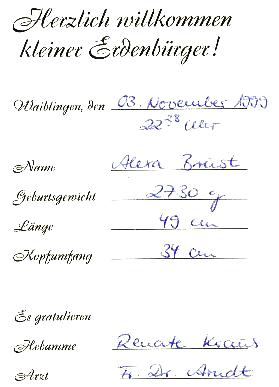 Herzlich willkommen
kleiner Erdenbürger!
Waiblingen, den 03. November 1999
22³⁸ Uhr
Name Alexa Breist
Geburtsgewicht 2730 g
Länge 49 cm
Kopfumfang 34 cm
Es gratulieren
Hebamme Renate Kraus
Arzt Fr. Dr. Arndt